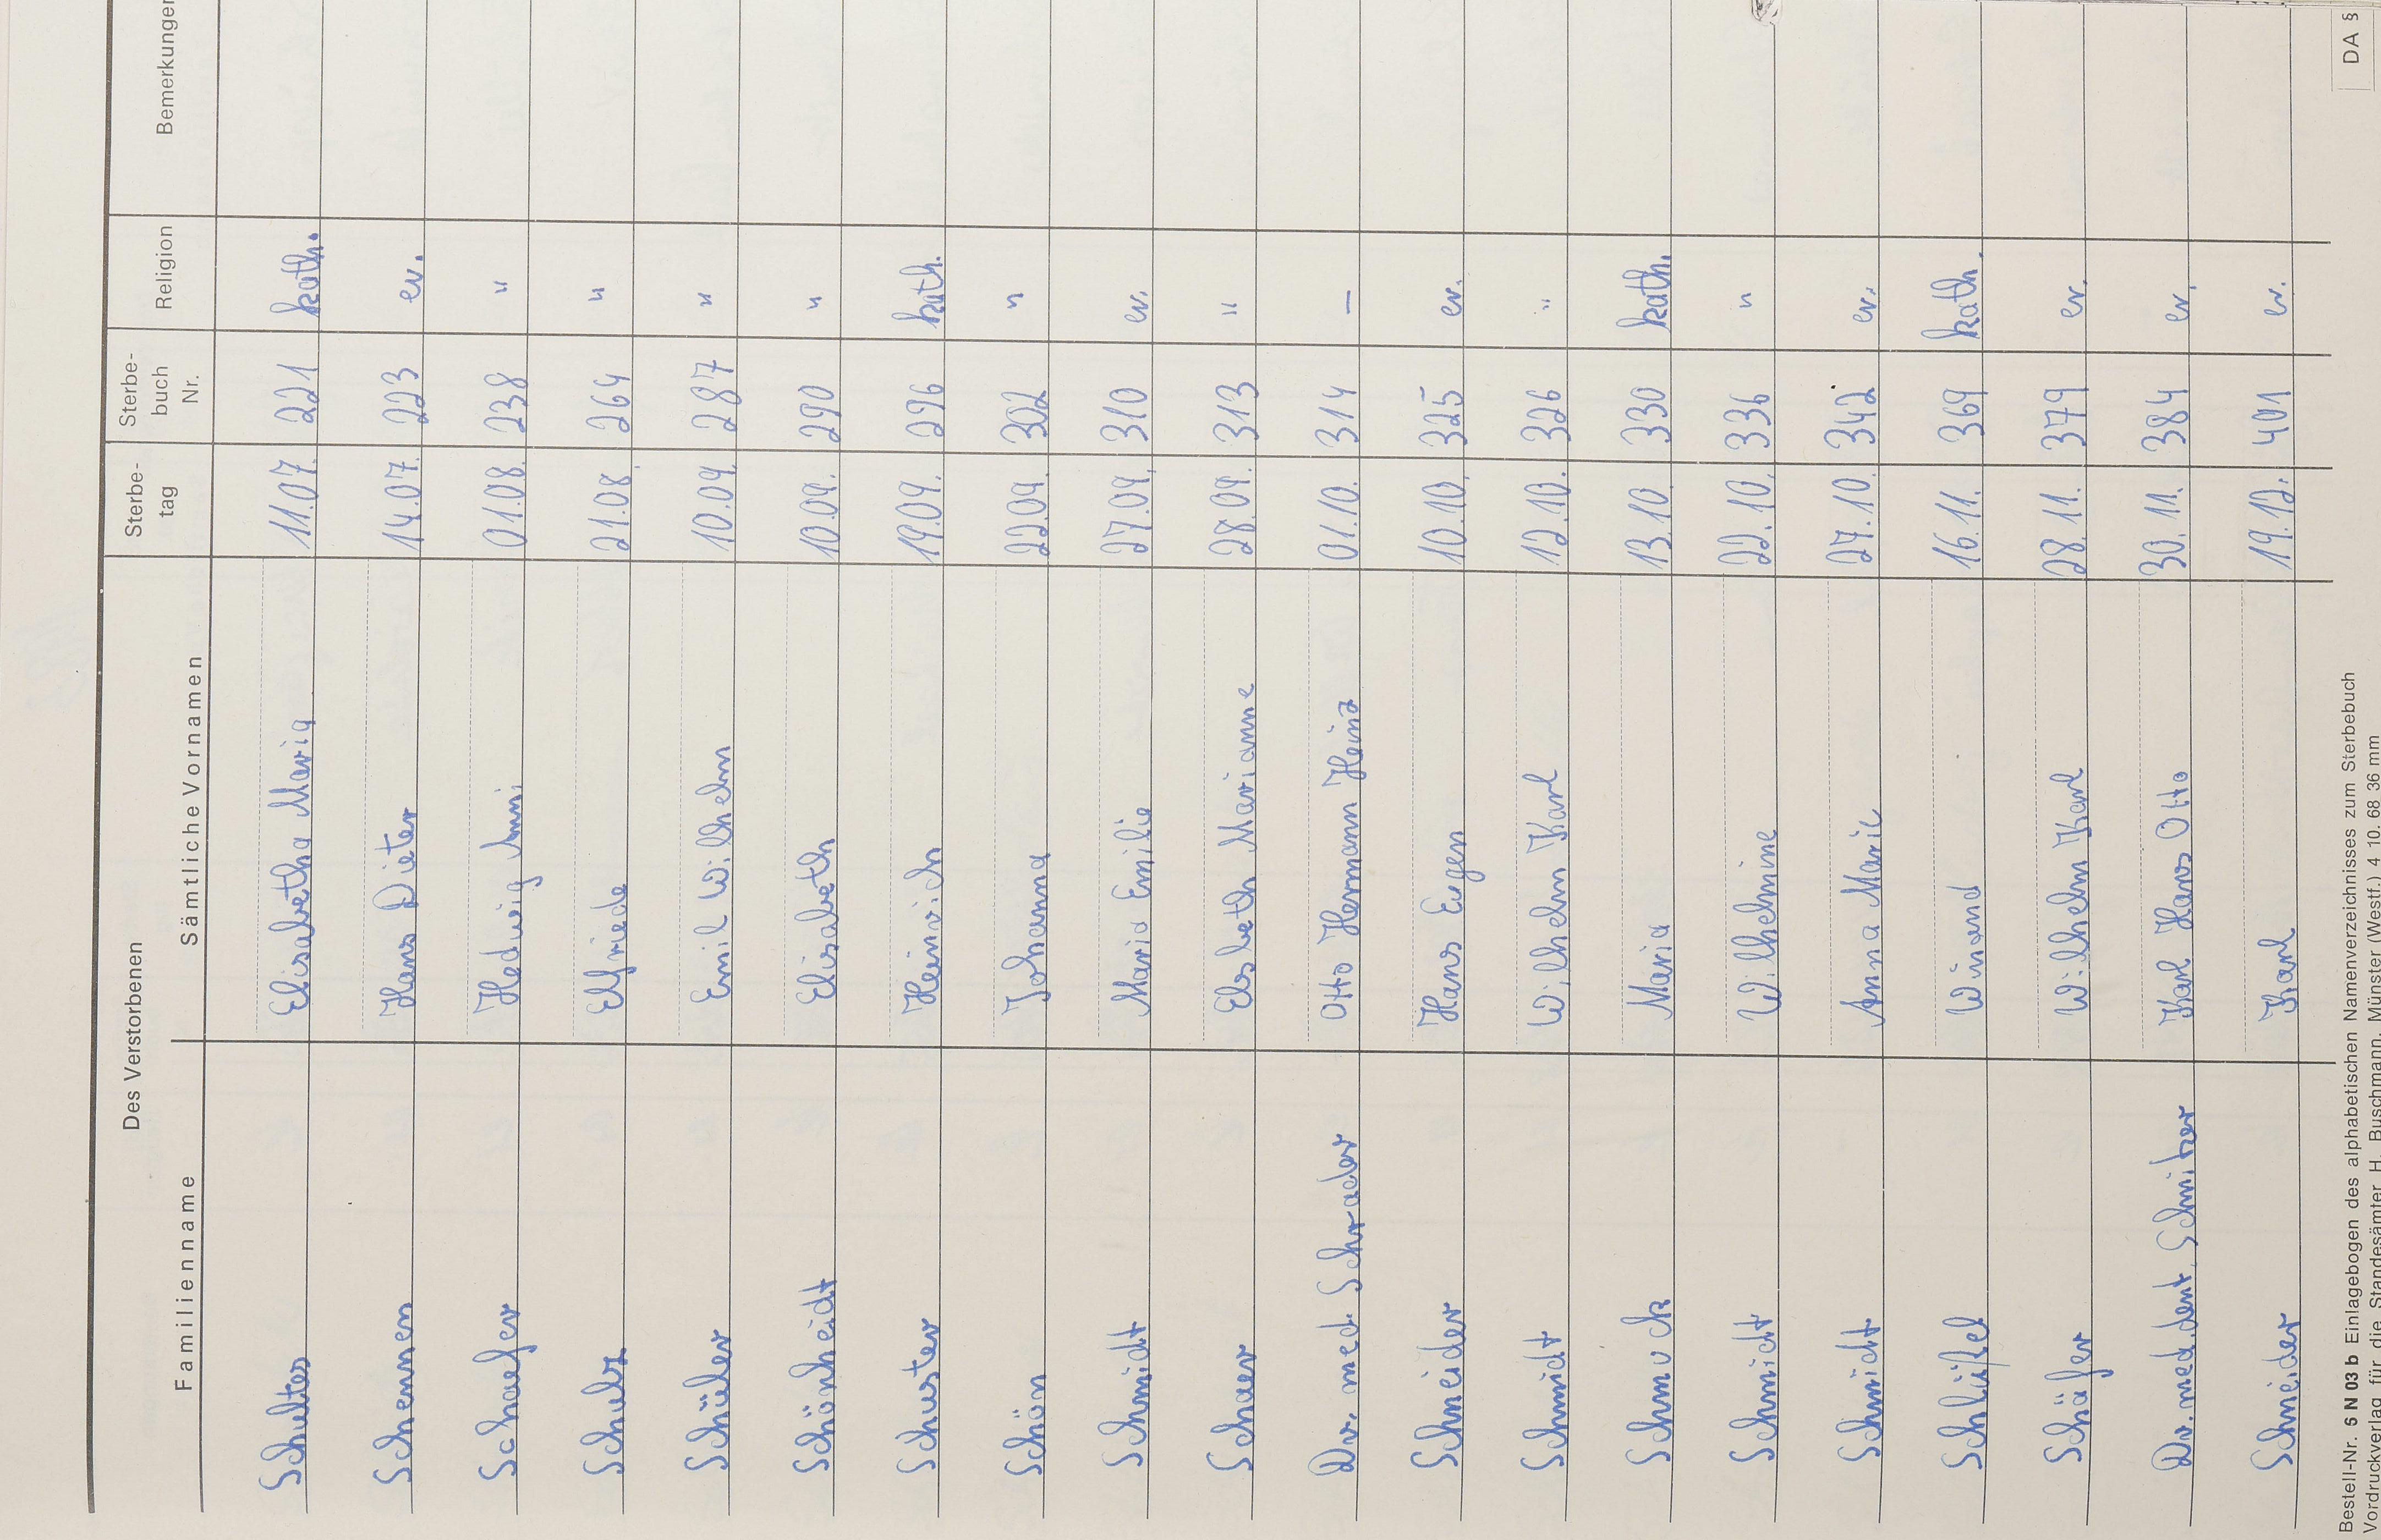 Des Verstorbenen
Familienname Sämtliche Vornamen Sterbe-
tag Sterbe-
buch
Nr. Religion Bemerkungen
Schultes Elisabetha Maria 11.07. 221 kath.
Schennen Hans Dieter 14.07. 223 ev.
Schaefer Hedwig Anni 01.08. 238 "
Schulz Elfriede 21.08. 264 "
Schüler Emil Wilhelm 10.09. 287 "
Schönheidt Elisabeth 10.09. 290 "
Schuster Heinrich 19.09. 296 kath.
Schön Johanna 22.09. 302 "
Schmidt Maria Emilie 27.09. 310 ev.
Schaer Elsbeth Marianne 28.09. 313 "
Dr. med. Schrader Otto Hermann Heinz 01.10. 314 —
Schneider Hans Eugen 10.10. 325 ev.
Schmidt Wilhelm Karl 12.10. 326 "
Schmuck Maria 13.10. 330 kath.
Schmidt Wilhelmine 22.10. 336 "
Schmidt Anna Marie 27.10. 342 ev.
Schlüßel Winand 16.11. 369 kath.
Schäfer Wilhelm Karl 28.11. 379 ev.
Dr. med. dent. Karl Hans Otto 30.11. 384 ev.
Schneider Karl 19.12. 401 ev.
Bestell-Nr. 5 N 03 b Einlagebogen des alphabetischen Namenverzeichnisses zum Sterbebuch
Vordruckverlag für die Standesämter H. Buschmann, Münster (Westf.) 4 10. 68 36 mm
DA §